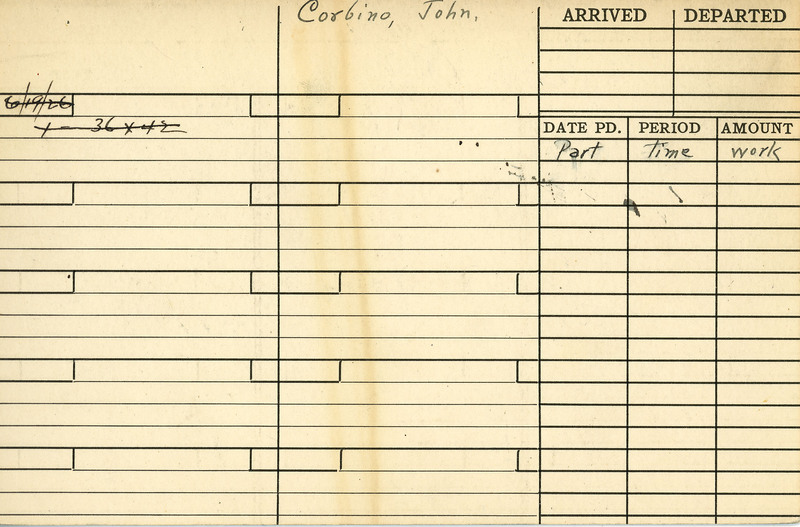 Corbino, John.
ARRIVED DEPARTED
6/19/26
1 - 36 x 42
DATE PD. PERIOD AMOUNT
Part time work